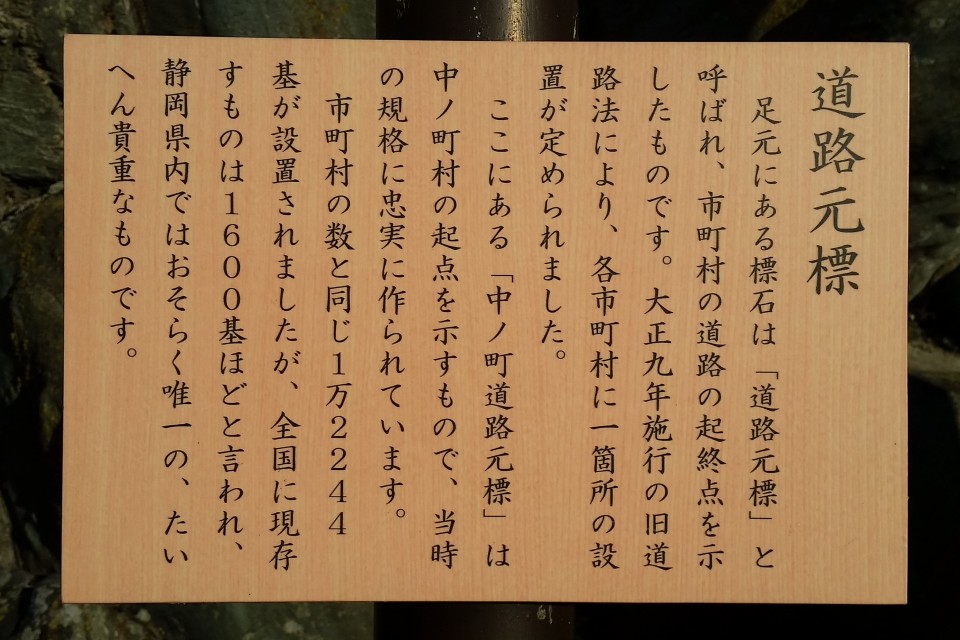 道路元標
足元にある標石は「道路元標」と
呼ばれ、市町村の道路の起終点を示
したものです。大正九年施行の旧道
路法により、各市町村に一箇所の設
置が定められました。
ここにある「中ノ町道路元標」は
中ノ町村の起点を示すもので、当時
の規格に忠実に作られています。
市町村の数と同じ1万2244
基が設置されましたが、全国に現存
すものは1600基ほどと言われ、
静岡県内ではおそらく唯一の、たい
へん貴重なものです。